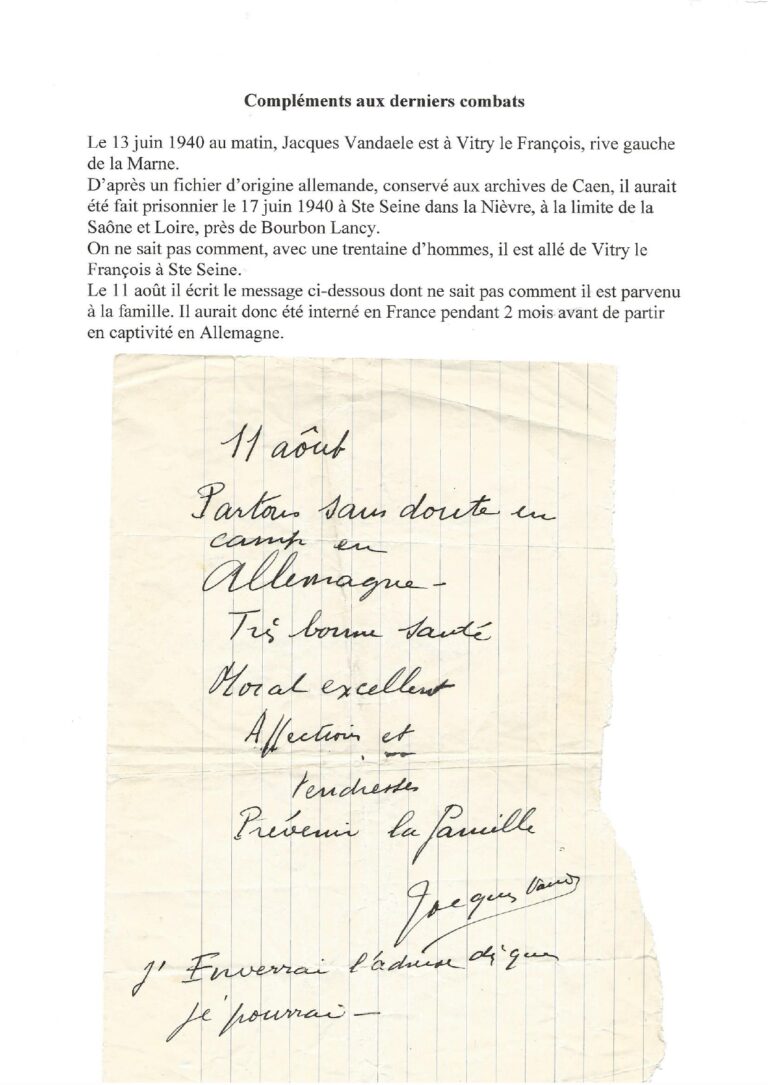 Compléments aux derniers combats
Le 13 juin 1940 au matin, Jacques Vandaele est à Vitry le François, rive gauche
de la Marne.
D'après un fichier d'origine allemande, conservé aux archives de Caen, il aurait
été fait prisonnier le 17 juin 1940 à Ste Seine dans la Nièvre, à la limite de la
Saône et Loire, près de Bourbon Lancy.
On ne sait pas comment, avec une trentaine d'hommes, il est allé de Vitry le
François à Ste Seine.
Le 11 août il écrit le message ci-dessous dont ne sait pas comment il est parvenu
à la famille. Il aurait donc été interné en France pendant 2 mois avant de partir
en captivité en Allemagne.
11 aôut
Partons sans doute en
camp en
Allemagne –
Très bonne santé
Moral excellent
Affections et
tendresses
Prévenir la famille
Jacques
J' Enverrai l'adresse dès que
je pourrai –